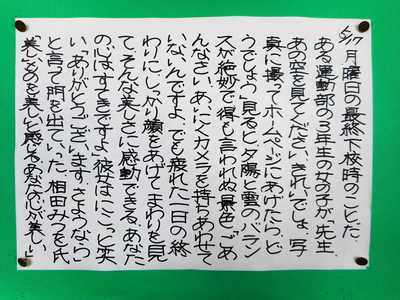 5/17
月曜日の最終下校時のことだ。
ある運動部の3年生の女の子が、「先生、
あの空を見てください。きれいでしょ。写
真に撮ってホームページにあげたら、ど
うでしょう。」見ると夕陽と雲のバラン
スが絶妙で得も言われぬ景色。「ごめ
んなさい。あいにくカメラを持ちあわせて
いないんですよ。でも疲れた一日の終
わりに、しっかり顔をあげてまわりを見
て、そんな美しさに感動できる、あなた
の心はすてきですよ。」彼女はにこっと笑
い、「ありがとうございます。さようなら。」
と言って門を出ていった。相田みつを氏
「美しいものを美しいと感じる、あなたの心が美しい」